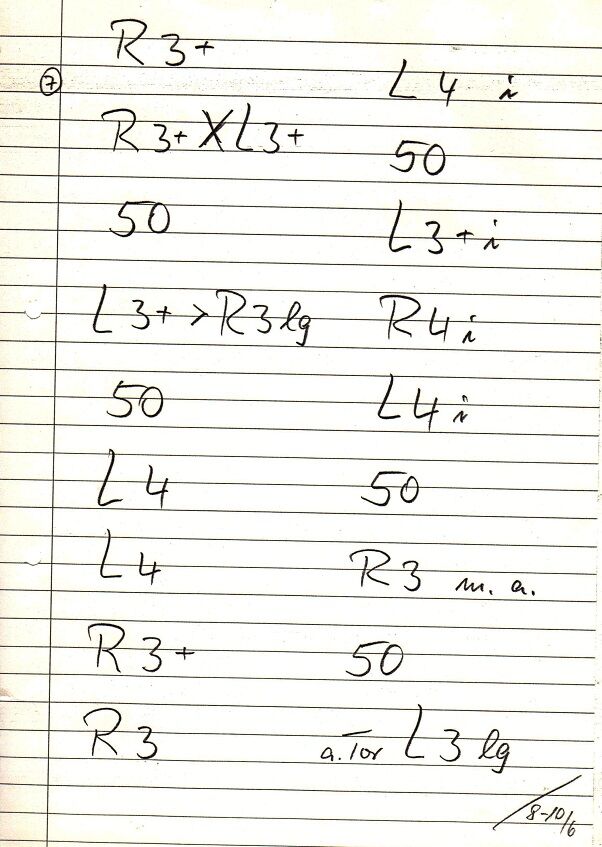 R3+
⑦
R3+ X L3+
50
L3+ > R3 lg
50
L4
L4
R3+
R3
L4 i
50
L3+ i
R4 i
L4 i
50
R3 m. a.
50
a. Tor L3 lg
8-10/6